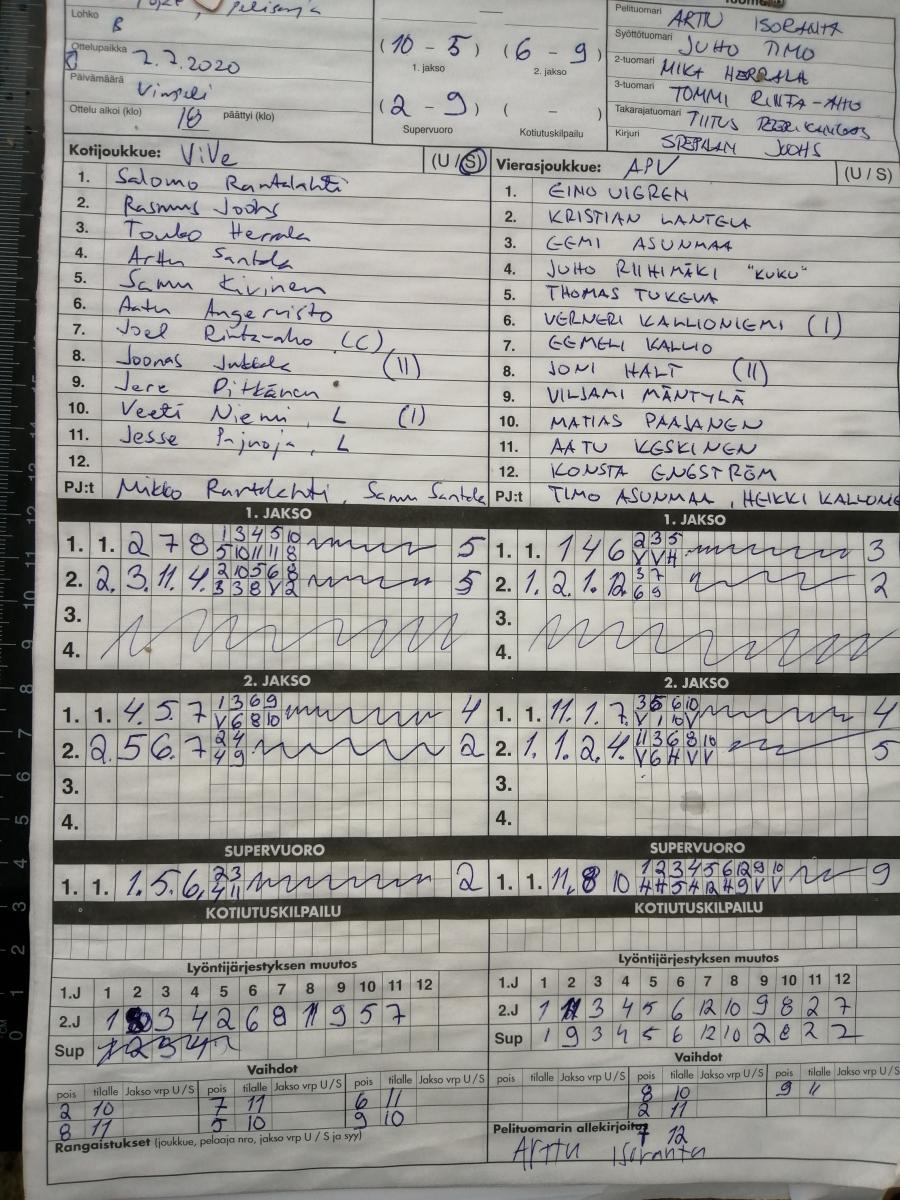 Lohko
B
Ottelupaikka
2.7.2020
Päivämäärä
Vimpeli
Ottelu alkoi (klo) 18 päättyi (klo)
(10 - 5) (6 - 9)
1. jakso 2. jakso
(2 - 9) ( - )
Supervuoro Kotiutuskilpailu
Pelituomari ARTTU ISORANTA
Syöttötuomari JUHO TIMO
2-tuomari MIKA HERRALA
3-tuomari TOMMI RINTA-AHO
Takarajatuomari TIITUS
Kirjuri JOOHS
Kotijoukkue: ViVe (U/S)
1. Salomo Rantalahti
2. Rasmus Joohs
3. Touko Herrala
4. Arttu Santala
5. Samu Kivinen
6. Aatu Angervisto
7. Joel Rinta-aho (C)
8. Joonas Jukkola (II)
9. Jere Pitkänen
10. Veeti Niemi, L (I)
11. Jesse Pajuoja, L
12.
PJ:t Mikko Rantalahti, Samu Santala
Vierasjoukkue: APV (U/S)
1. EINO VIGREN
2. KRISTIAN LANTELA
3. EEMI ASUNMAA
4. JUHO RIIHIMÄKI "KUKU"
5. THOMAS TUKEVA
6. VERNERI KALLIONIEMI (I)
7. EEMELI KALLIO
8. JONI HALT (II)
9. VILJAMI MÄNTYLÄ
10. MATIAS PAAJANEN
11. AATU KESKINEN
12. KONSTA ENGSTRÖM
PJ:t TIMO ASUNMAA, HEIKKI KALLIONIE
1. JAKSO
1. 1. 2 7 8 1 3 4 5 10 5
5 10 11 11 8
2. 2. 3. 11. 4. 2 10 5 6 8 5
3 3 8 V 2
3.
4.
1. JAKSO
1. 1. 1 4 6 2 3 5 3
V V H
2. 1. 2. 1. 12. 3 7 2
6 9
3.
4.
2. JAKSO
1. 1. 4. 5. 7 1 3 6 9 4
V 6 8 10
2. 2. 5 6. 7 2 4 2
4 9
3.
4.
2. JAKSO
1. 1. 11. 1. 7. 3 5 6 10 4
V 1 10 V
2. 1. 1. 2. 4. 11 3 6 8 10 5
V 6 H V V
3.
4.
SUPERVUORO
1. 1. 1. 5. 6. 2 3 2
4 11
SUPERVUORO
1. 1. 11, 8 10 1 2 3 4 5 6 12 9 10 9
H H 5 H 12 H 9 V V
KOTIUTUSKILPAILU
KOTIUTUSKILPAILU
Lyöntijärjestyksen muutos
1.J 1 2 3 4 5 6 7 8 9 10 11 12
2.J 1 10 3 4 2 6 8 11 9 5 7
Sup 1 2 3 4 5
Lyöntijärjestyksen muutos
1.J 1 2 3 4 5 6 7 8 9 10 11 12
2.J 1 11 3 4 5 6 12 10 9 8 2 7
Sup 1 9 3 4 5 6 12 10 2 8 2 2
Vaihdot
pois tilalle Jakso vrp U/S pois tilalle Jakso vrp U/S pois tilalle Jakso vrp U/S
2 10 7 11 6 11
8 11 5 10 9 10
Rangaistukset (joukkue, pelaaja nro, jakso vrp U/S ja syy)
Vaihdot
pois tilalle Jakso vrp U/S pois tilalle Jakso vrp U/S pois tilalle Jakso vrp U/S
8 10 9 11
2 11
7 12
Pelituomarin allekirjoitus
Arttu Isoranta